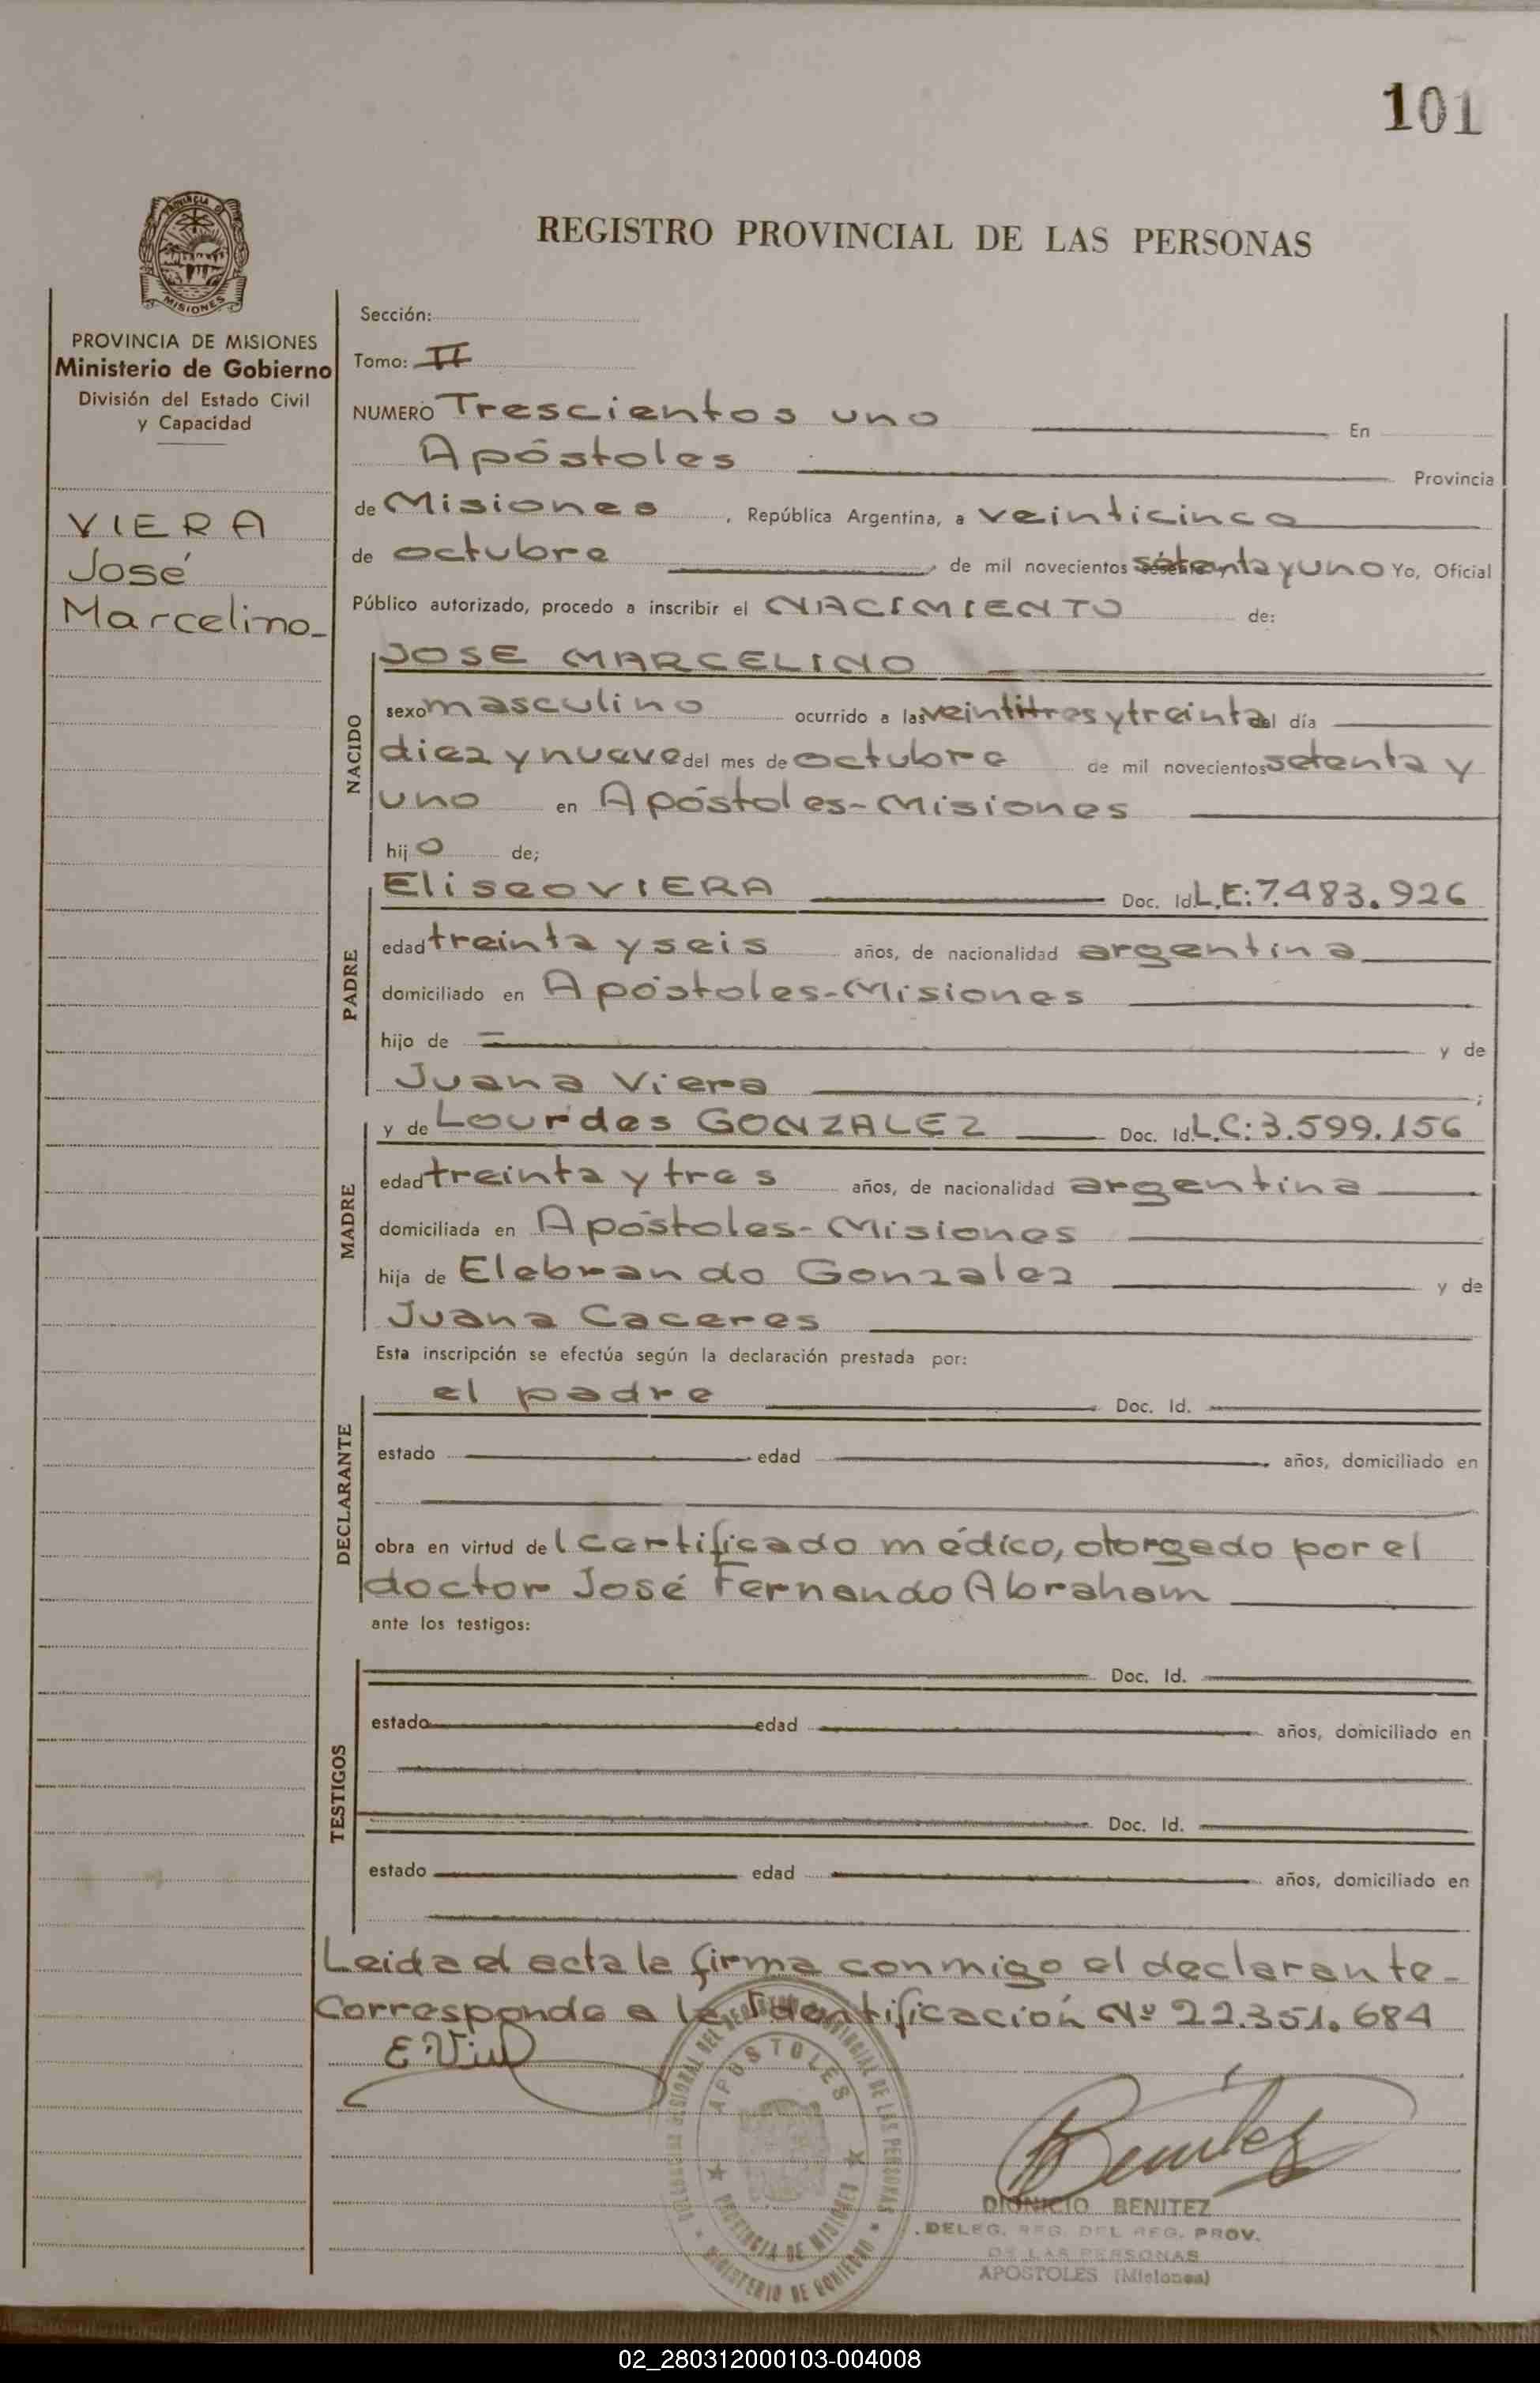 101
PROVINCIA DE
MISIONES
REGISTRO PROVINCIAL DE LAS PERSONAS
PROVINCIA DE MISIONES
Ministerio de Gobierno
División del Estado Civil
y Capacidad
VIERA
José
Marcelino-
Sección:
Tomo: II
NUMERO Trescientos uno En
Apóstoles Provincia
de Misiones, República Argentina, a veinticinco
de octubre, de mil novecientos setenta y uno Yo, Oficial
Público autorizado, procedo a inscribir el NACIMIENTO de:
NACIDO
JOSE MARCELINO
sexo masculino ocurrido a las veintitres y treinta del día
diez y nueve del mes de octubre de mil novecientos setenta y
uno en Apóstoles-Misiones
hijo de;
PADRE
Eliseo VIERA Doc. Id. L.E: 7.483.926
edad treinta y seis años, de nacionalidad argentina
domiciliado en Apóstoles-Misiones
hijo de y de
Juana Viera;
MADRE
y de Lourdes GONZALEZ Doc. Id. L.C: 3.599.156
edad treinta y tres años, de nacionalidad argentina
domiciliada en Apóstoles-Misiones
hija de Elebrando Gonzalez y de
Juana Caceres
Esta inscripción se efectúa según la declaración prestada por:
DECLARANTE
el padre Doc. Id.
estado edad años, domiciliado en
obra en virtud del certificado médico, otorgado por el
doctor José Fernando Abraham
ante los testigos:
TESTIGOS
Doc. Id.
estado edad años, domiciliado en
Doc. Id.
estado edad años, domiciliado en
Leida el acta la firma conmigo el declarante-
Corresponde a la Identificación Nº 22.351.684
APOSTOLES
PROVINCIA DE MISIONES
MINISTERIO DE GOBIERNO
Benitez
DIONICIO BENITEZ
DELEG. REG. DEL REG. PROV.
DE LAS PERSONAS
APOSTOLES (Misiones)
02_280312000103-004008